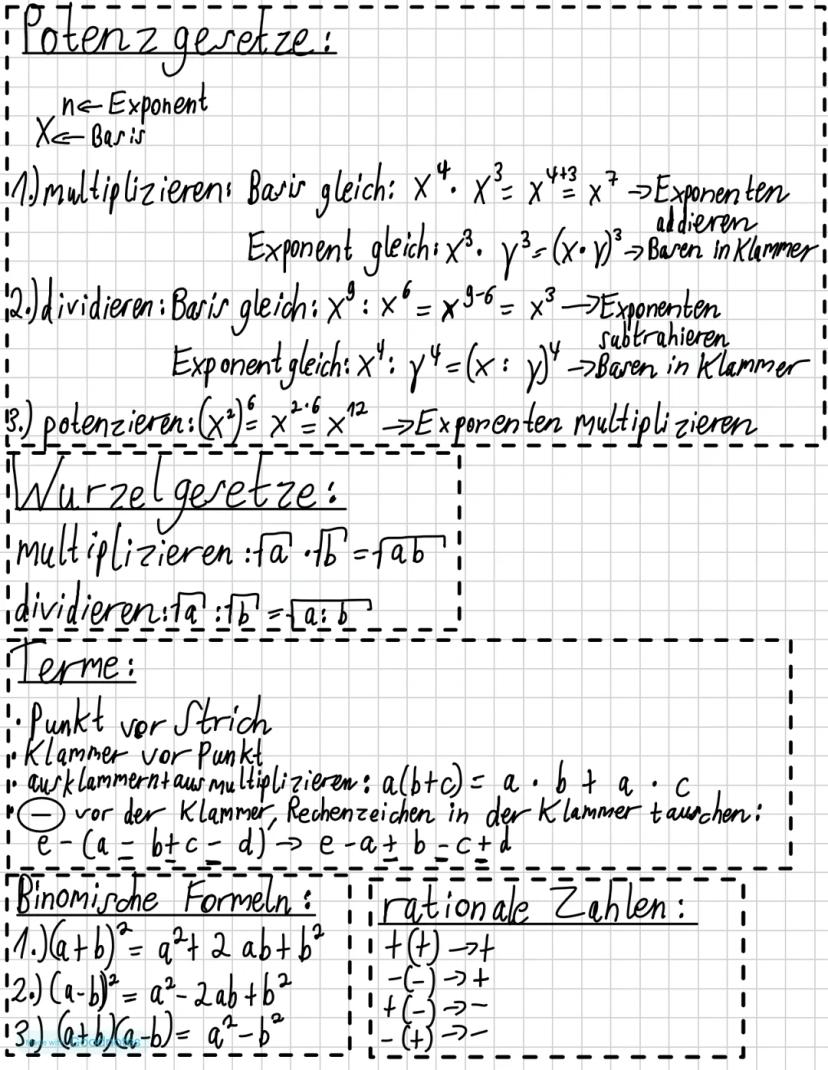 Potenzgesetze:
n ← Exponent
X ← Basis
1.) multiplizieren: Basis gleich: x⁴ · x³ = x⁴⁺³ = x⁷ → Exponenten
addieren
Exponent gleich: x³ · y³ = (x · y)³ → Basen in Klammer
2.) dividieren: Basis gleich: x⁹ : x⁶ = x⁹⁻⁶ = x³ → Exponenten
subtrahieren
Exponent gleich: x⁴ : y⁴ = (x : y)⁴ → Basen in Klammer
3.) potenzieren: (x²)⁶ = x²·⁶ = x¹² → Exponenten multiplizieren
Wurzelgesetze:
multiplizieren: √a · √b = √ab
dividieren: √a : √b = √a:b
Terme:
· Punkt vor Strich
· Klammer vor Punkt
· ausklammern + ausmultiplizieren: a(b+c) = a · b + a · c
· ⊖ vor der Klammer, Rechenzeichen in der Klammer tauschen:
e - (a - b + c - d) → e - a + b - c + d
Binomische Formeln:
1.) (a+b)² = a² + 2ab + b²
2.) (a-b)² = a² - 2ab + b²
3.) (a+b)(a-b) = a² - b²
rationale Zahlen:
+(+) → +
-(-) → +
+(-) → -
-(+) → -